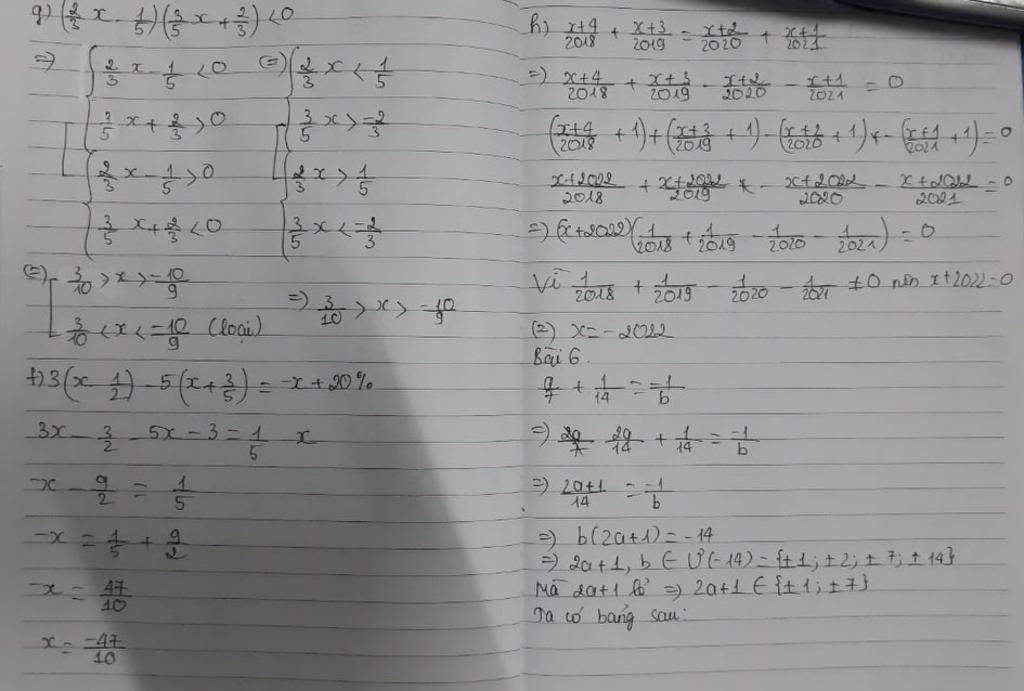 g) (2/3 x - 1/5)(3/5 x + 2/3) < 0
=> { 2/3 x - 1/5 < 0 (=) { 2/3 x < 1/5
3/5 x + 2/3 > 0 3/5 x > -2/3
{ 2/3 x - 1/5 > 0 { 2/3 x > 1/5
3/5 x + 2/3 < 0 3/5 x < -2/3
(=) [ 3/10 > x > -10/9
3/10 < x < -10/9 (loại) => 3/10 > x > -10/9
f) 3(x - 1/2) - 5(x + 3/5) = -x + 20%
3x - 3/2 - 5x - 3 = 1/5 x
-x - 9/2 = 1/5
-x = 1/5 + 9/2
-x = 47/10
x = -47/10
h) x+4/2018 + x+3/2019 = x+2/2020 + x+1/2021
=) x+4/2018 + x+3/2019 - x+2/2020 - x+1/2021 = 0
(x+4/2018 + 1) + (x+3/2019 + 1) - (x+2/2020 + 1) - (x+1/2021 + 1) = 0
x+2022/2018 + x+2022/2019 - x+2022/2020 - x+2022/2021 = 0
=) (x+2022)(1/2018 + 1/2019 - 1/2020 - 1/2021) = 0
Vì 1/2018 + 1/2019 - 1/2020 - 1/2021 ≠ 0 nên x+2022=0
(=) x = -2022
Bài 6.
a/7 + 1/14 = -1/b
=) 2a/14 + 1/14 = -1/b
=) 2a+1/14 = -1/b
=) b(2a+1) = -14
=) 2a+1, b ∈ Ư(-14) = {±1; ±2; ±7; ±14}
Mà 2a+1 lẻ => 2a+1 ∈ {±1; ±7}
Ta có bảng sau: